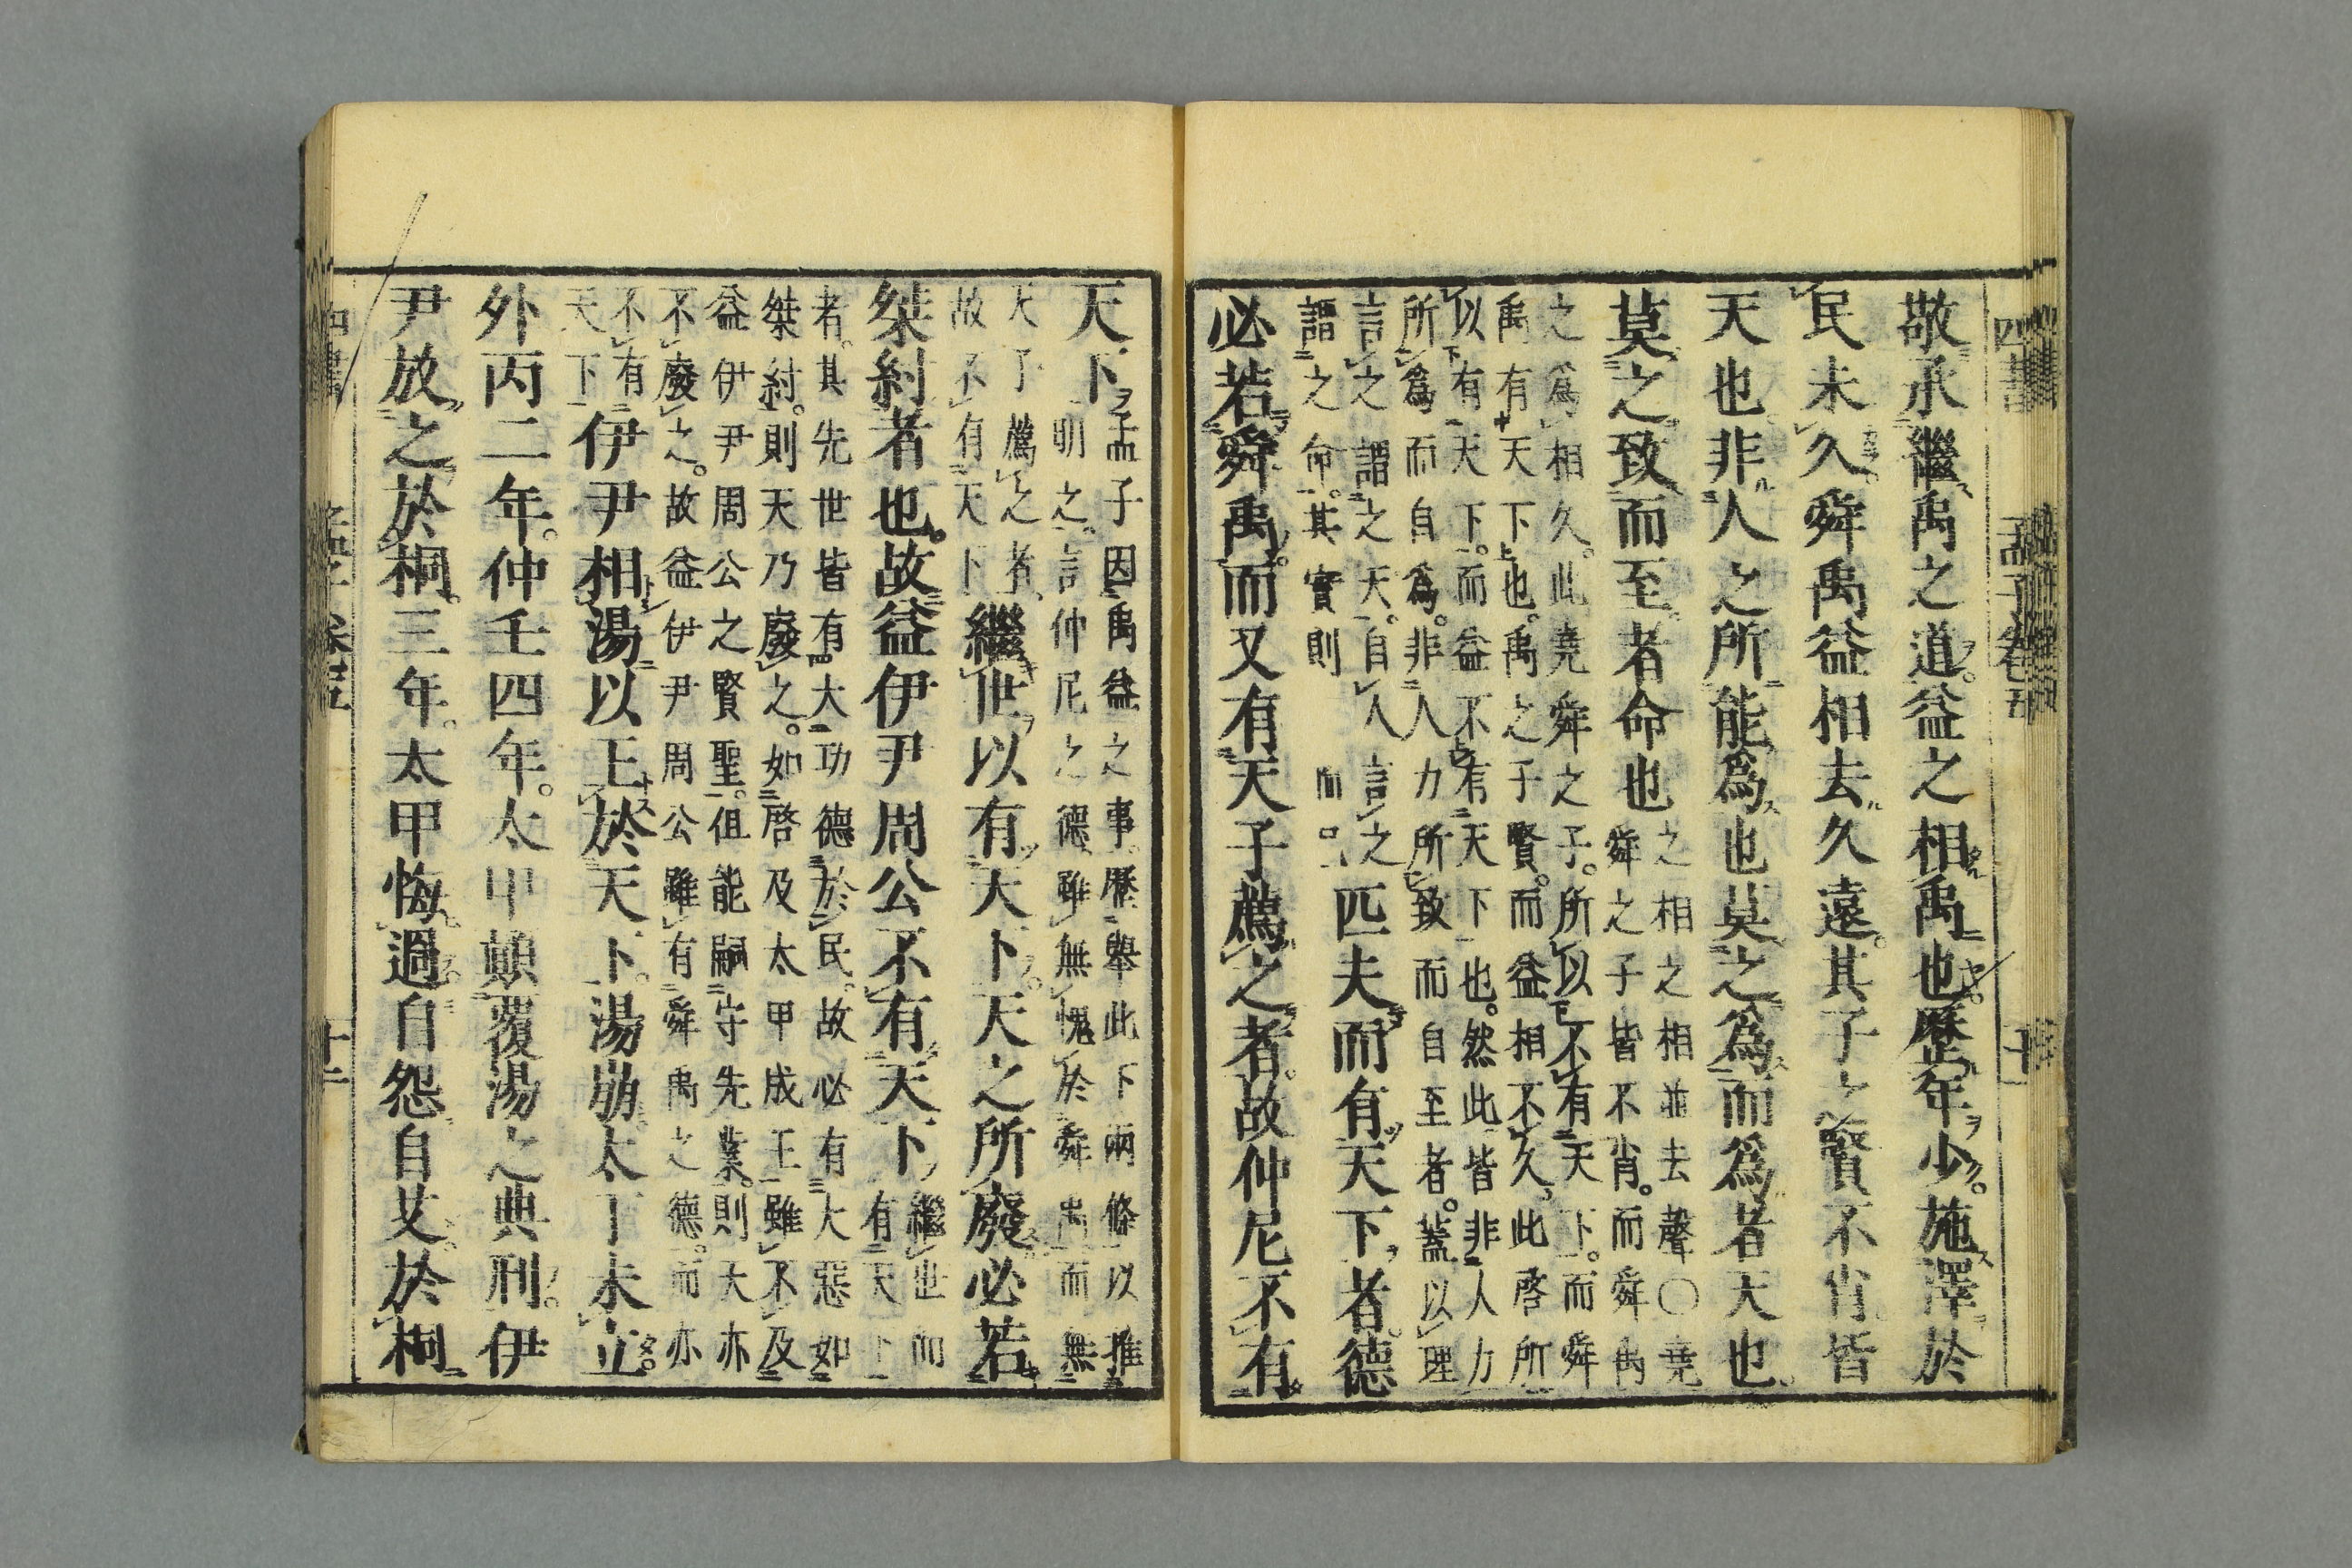 四書 孟子卷五 十一
敬承繼禹之道益之相禹也歷年少施澤於
民未久舜禹益相去久遠其子之賢不肖皆
天也非人之所能爲也莫之爲而爲者天也
莫之致而至者命也
之相之相並去聲○堯
舜之子皆不肖而舜禹
之爲相久此堯舜之子所以不有天下而舜
禹有天下也禹之子賢而益相不久此啓所
以有天下而益不有天下也然此皆非人力
所爲而自爲非人力所致而自至者蓋以理
言之謂之天自人言之
謂之命其實則
匹夫而有天下者德
必若舜禹而又有天子薦之者故仲尼不有
天下
孟子因禹益之事歷舉此下兩條以推
明之言仲尼之德雖無愧於舜禹而無
天子薦之者
故不有天下
繼世以有天下天之所廢必若
桀紂者也故益伊尹周公不有天下
繼世而
有天下
者其先世皆有大功德於民故必有大惡如
桀紂則天乃廢之如啓及太甲成王雖不及
益伊尹周公之賢聖但能嗣守先業則天亦
不廢之故益伊尹周公雖有舜禹之德而亦
不有
天下
伊尹相湯以王於天下湯崩太丁未立
外丙二年仲壬四年太甲顛覆湯之典刑伊
尹放之於桐三年太甲悔過自怨自艾於桐
十二